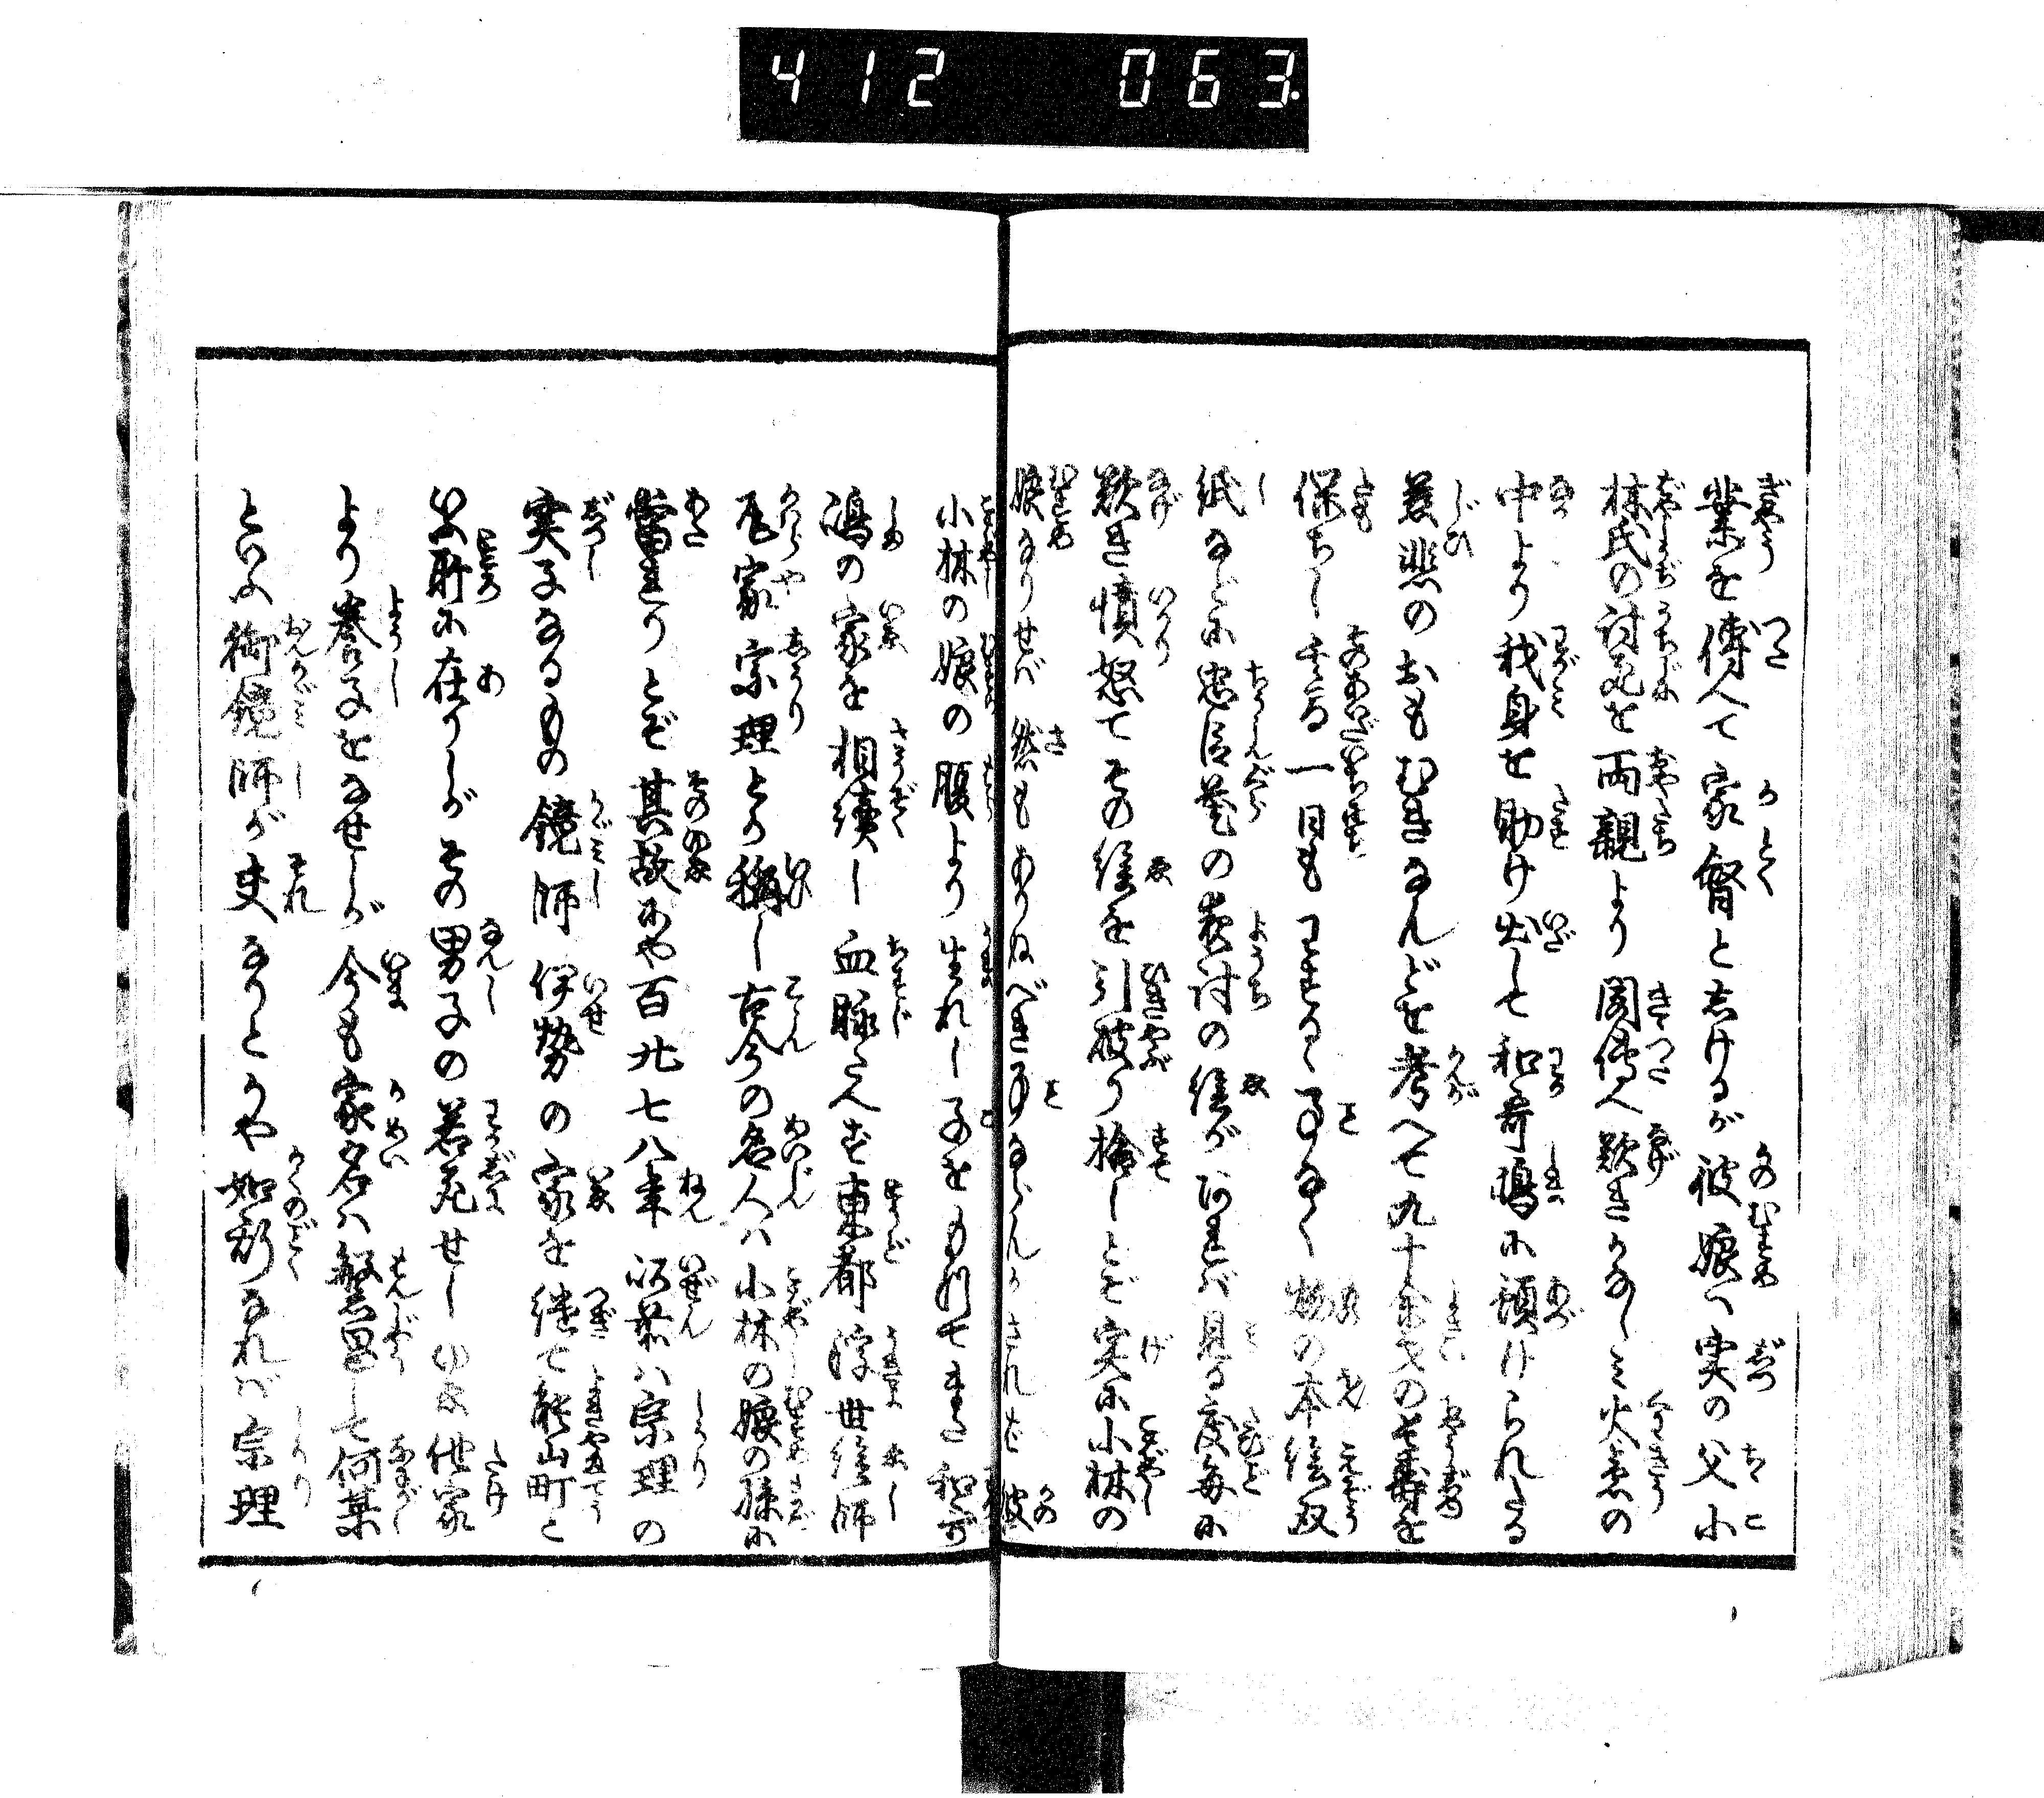 412 063.
業を傳へて家督と志けるが彼娘ハ実の父小
林氏の討死を両親より聞傳へ歎きかなしミ火急の
中より我身を助け出して和哥嶋に預けられたる
慈悲のおもむきなんどを考へて九十余才の長壽を
保ちし至る一日もわするゝ事なく物の本絵双
紙などに忠臣蔵の夜討の絵があれバ見る度毎に
歎き憤怒てその絵を引破り捨しとぞ実に小林の
娘なりせバ然もありぬべき事ならんかされど彼
小林の娘の腹より生れし子をもつてまた和哥
嶋の家を相續し血脉たへず東都浮世絵師
俵家宗理とか稱し古今の名人ハ小林の娘の孫に
當れりとぞ其故にや百廿七八年以前ハ宗理の
実子なるもの鏡師伊勢の家を継て横山町と
いふ所に在りしがその男子の若死せしゆゑ他家
より養子をなせしが今も家名ハ繁昌して何某
といふ御鏡師が夫なりとかや如斯なれバ宗理